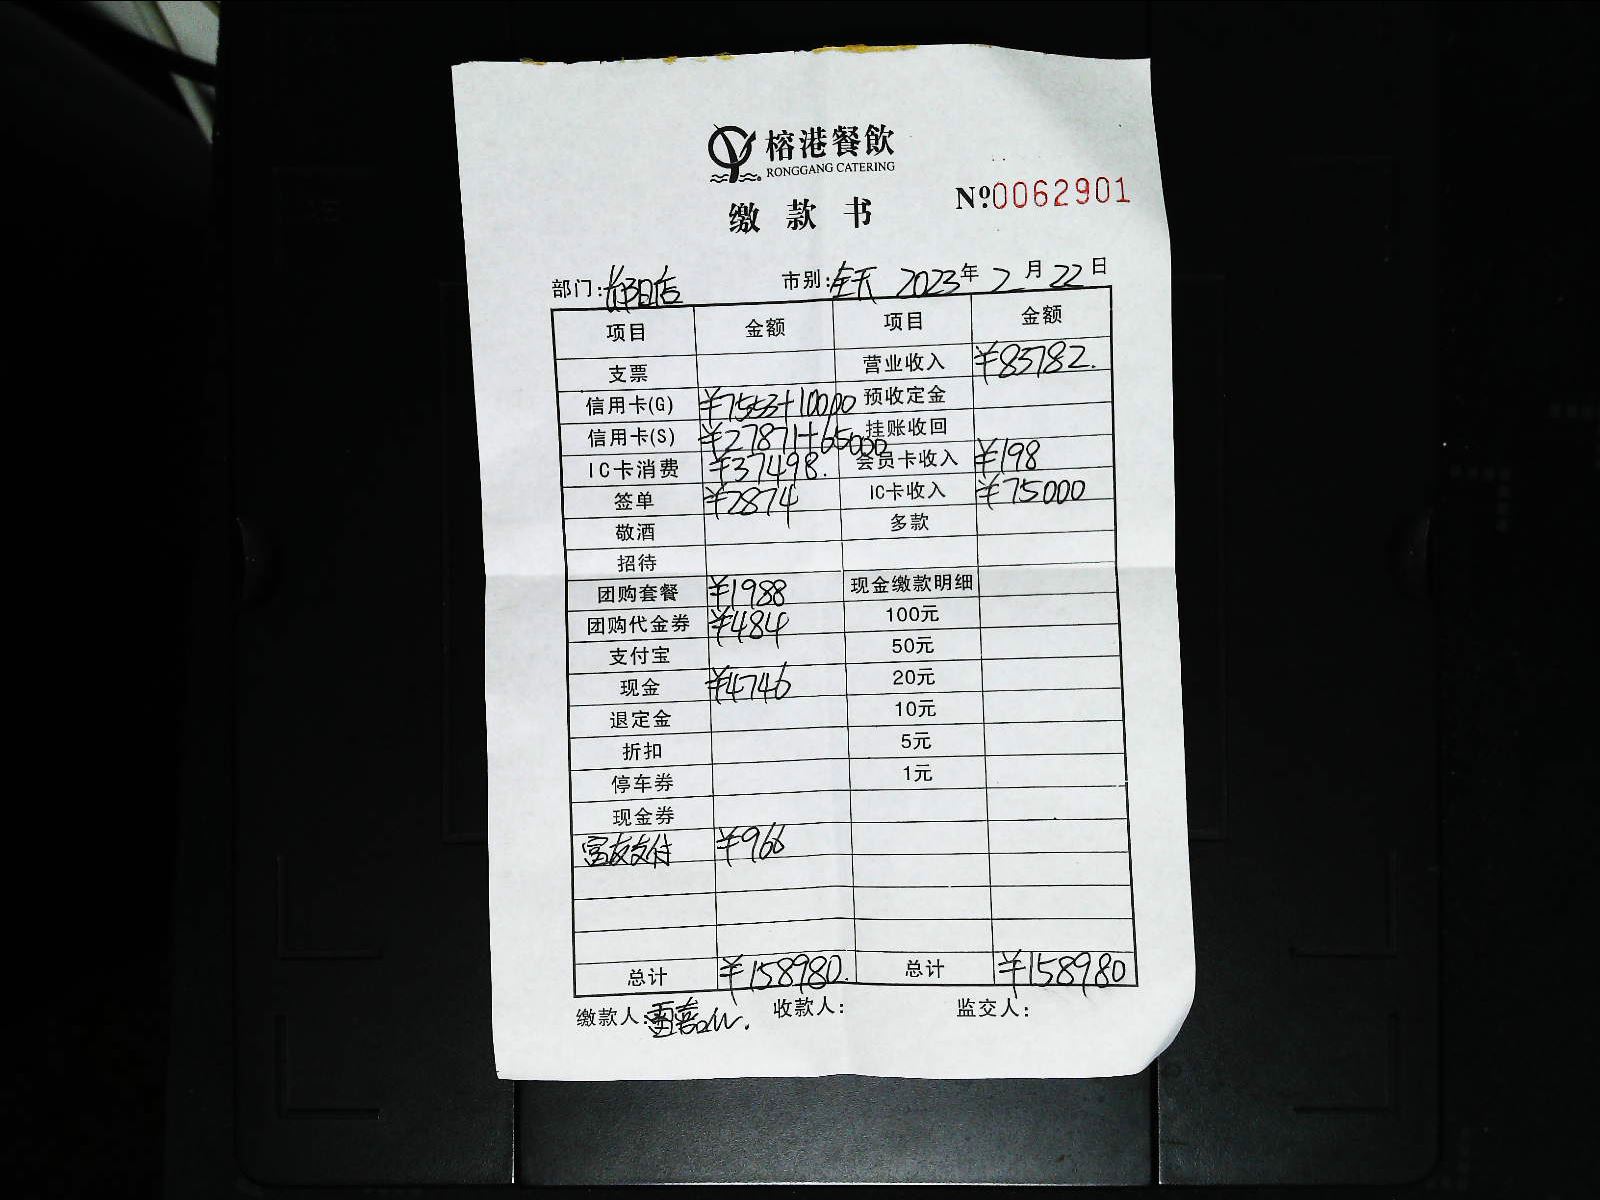 榕港餐飲
RONGGANG CATERING
缴款书
Nº0062901
部门: 市别:全天 2023年2月22日
项目 金额 项目 金额
支票 营业收入 ¥83782.
信用卡(G) ¥7553+10000 预收定金
信用卡(S) ¥27871+65000 挂账收回
IC卡消费 ¥37498. 会员卡收入 ¥198
签单 ¥2874 IC卡收入 ¥75000
敬酒 多款
招待
团购套餐 ¥1988 现金缴款明细
团购代金券 ¥484 100元
支付宝 50元
现金 ¥4746 20元
退定金 10元
折扣 5元
停车券 1元
现金券
富友支付 ¥966
总计 ¥158980. 总计 ¥158980
缴款人: 收款人: 监交人: